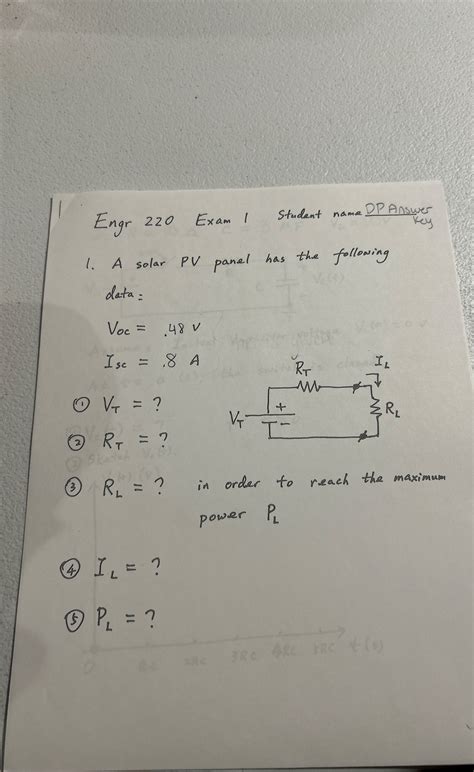 Engr 220 Exam 1 Student name DP Answer Key
1. A solar PV panel has the following
data:
Voc = .48 V
Isc = .8 A
① V_T = ?
R_T
I_L
V_T
+
−
R_L
② R_T = ?
③ R_L = ? in order to reach the maximum
power P_L
④ I_L = ?
⑤ P_L = ?
0 RC 2RC 3RC 4RC 5RC t(s)